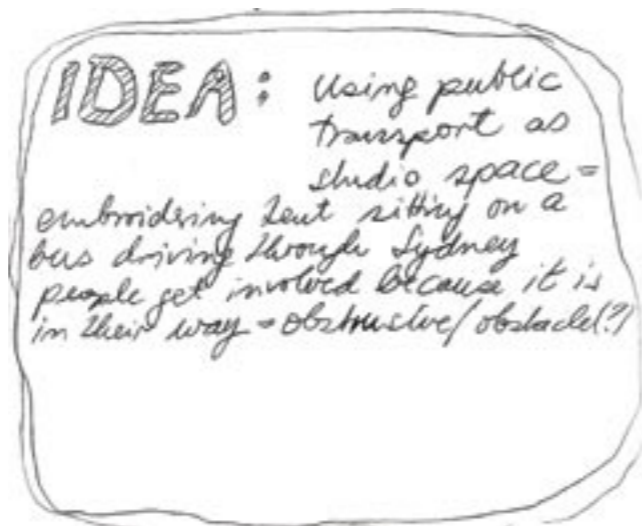 IDEA: Using public
transport as
studio space =
embroidering tent sitting on a
bus driving through Sydney
people get involved because it is
in their way = obstrusive/obstacle(?)